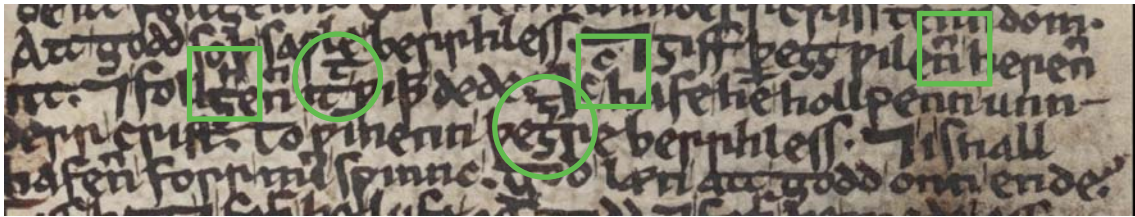 Att godd soþ saƿle berrhless. ⁊ ȝiff þeȝȝ ƿilenn herenn
itt. ⁊ follȝhenn itt ƿiþþ dede. Icc hafe hemm hollpenn unn-
derr crist. To ƿinnenn þeȝȝre berrhless. ⁊ I shall
hafenn forr min sƿinnc. god læn att godd onn ende.